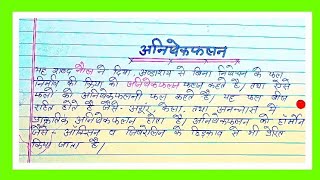 अनिषेकफलन
यह शब्द नौल ने दिया अण्डाशय से बिना निषेचन के फल
निर्माण की क्रिया को अनिषेकफलन कहते हैं। तथा ऐसे
फलों को अनिषेकफलनी फल कहते हैं। यह फल बीज
रहित होते हैं जैसे- अंगूर केला, तथा अनन्नास में
प्राकृतिक अनिषेकफलन होता है। अनिषेकफलन को हार्मोन
जैसे - ऑक्सिन व जिबरेलिन के छिड़काव से भी प्रेरित
किया जाता है।